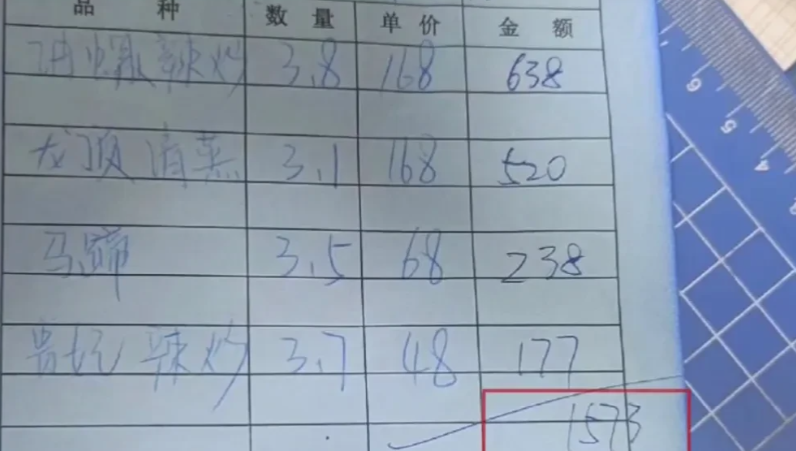 品 种 数 量 单 价 金 额
辣炒 3.8 168 638
清蒸 3.1 168 520
马蹄 3.5 68 238
辣炒 3.7 48 177
1573